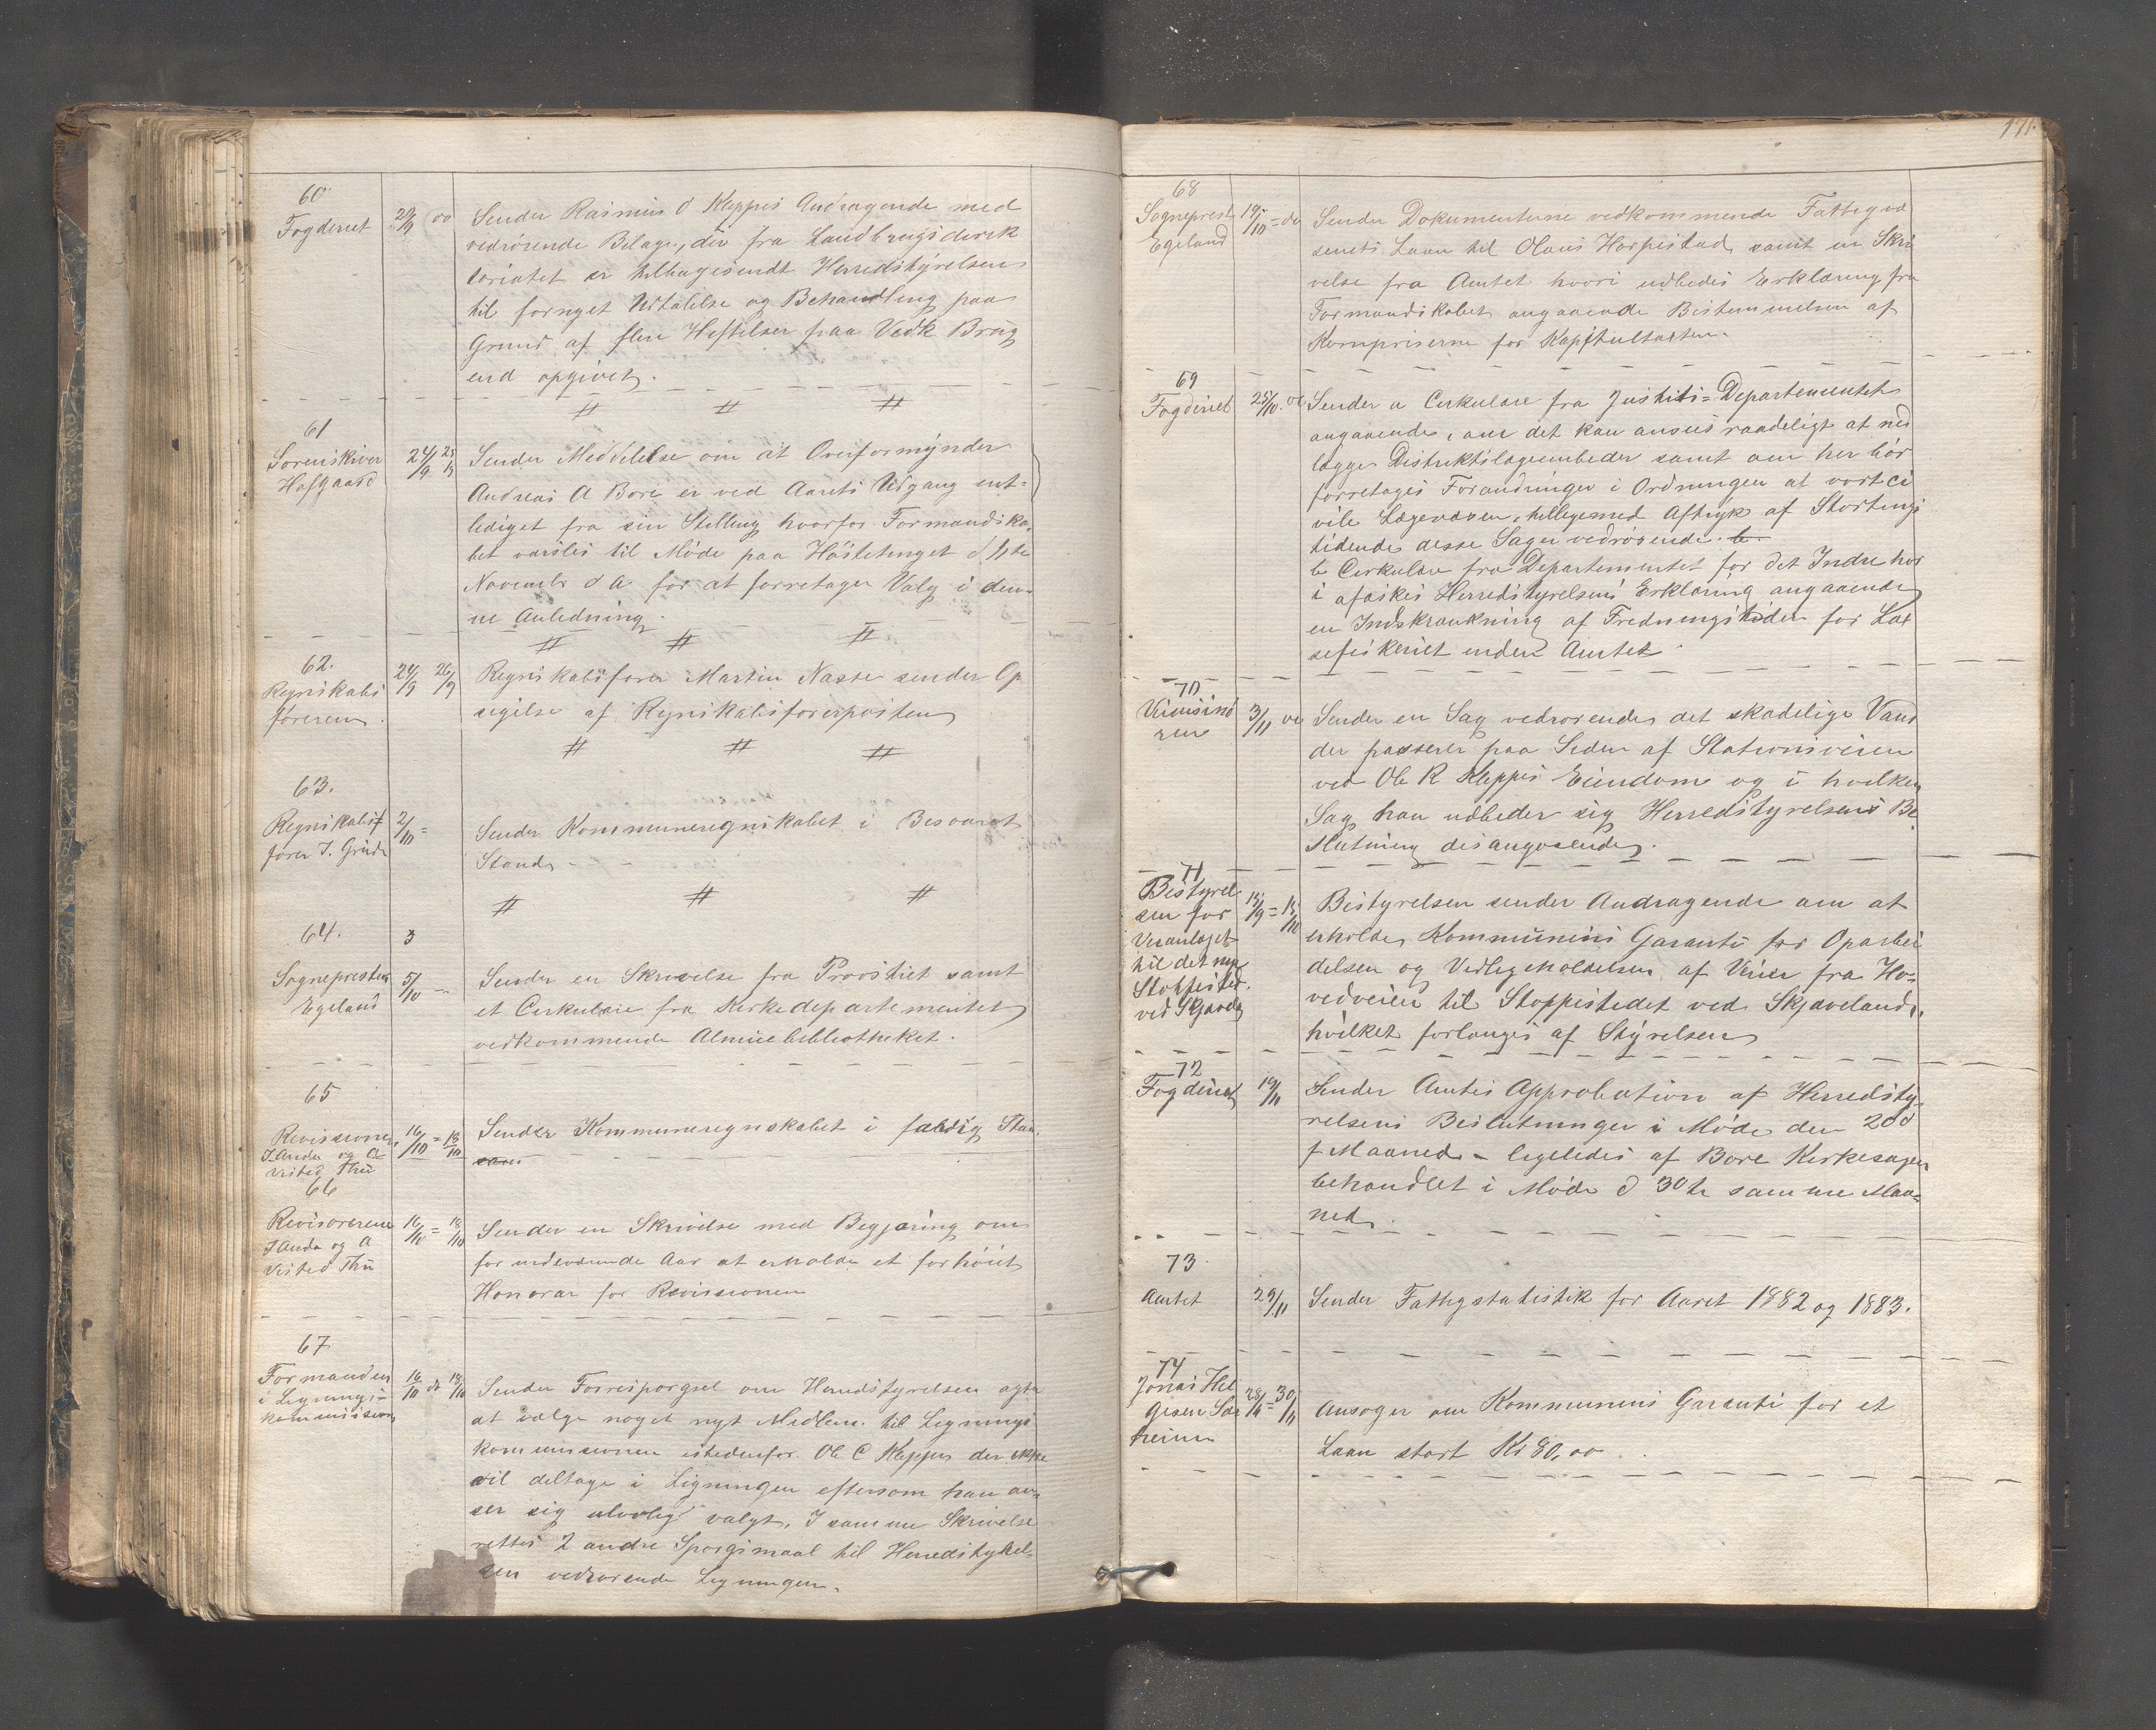 60
Fogderiet
20/9 oo
Sender Rasmus O Kleppes Andragende med
vedrörende Bilage, der fra Landbrugsdirek
toriatet er tilbagesendt Herredstyrelsen
til fornyet Udtalelse og Behandling paa
Grund af flere Heftelser paa Vedk Brug
end opgivet.
61
Sorenskriver
Hofgaard
24/9 25/9
Sender Meddelelse om at Overformynder
Andreas A Bore er ved Aarets Udgang ent-
lediget fra sin Stilling hvorfor Formandska
bet varsles til Möde paa Hösttetinget d 1ste
Novembr d A for at forretage Valg i den-
ne Anledning.
62.
Regnskabs
föreren.
24/9 26/9
Regnskabsfører Martin Næsse sender Op
sigelse af Regnskabsførerposten
63.
Regnskabs
fører J. Grude
2/10 =
Sender Kommuneregnskabet i Besvaret
Stand
64.
3
Sognepresten
Egeland
5/10 -
Sender en Skrivelse fra Provstiet samt
et Cirkulære fra Kirkedepartementet
vedkommende Almuebibliotheket.
65
Revisorerne
J Anda og A
Visted Thu
16/10 = 18/10
Sender Kommuneregnskabet i færdig Stan.
66
Revisorerne
J Anda og A
Visted Thu
16/10 = 18/10
Sender en Skrivelse med Begjæring om
for indeværende Aar at erholde et forhöiet
Honorar for Revisionen
67
Formanden
i Lignings-
kommission
16/10 do 18/10
Sender Forrespørgsel om Herredstyrelsen agter
at vælge noget nyt Medlem til Lignings
kommissionen istedenfor Ole C Kleppe der ikke
vil deltage i Ligningen eftersom han an-
ser sig ulovlig valgt. I samme Skrivelse
rettes 2 andre Spørgsmaal til Herredstyrel-
sen vedrørende Ligningen.
171.
68
Sogneprest
Egeland
19/10 = do
Sender Dokumenterne vedkommende Fattigvæ
senets Laan til Olaus Horpestad samt en Skri
velse fra Amtet hvori udbedes Erklæring fra
Formandskabet angaaende Bestemmelsen af
Kornpriserne for Kapitultaxten.
69
Fogderiet
25/10
Sender a Cirkulære fra Justits-Departementet
angaaende, om det kan ansees raadeligt at ned
lægge Distriktslægeembeder samt om her bör
forretages Forandringer i Ordningen at vort ci
vile Lægevæsen, tilligemed Aftryk af Stortings
tidende desse Sager vedrörende.
b Cirkulære fra Departementet for det Indre hvor
i afæskes Herredstyrelsens Erklæring angaaende
en Indskrænkning af Fredningstiden for Lax
sefiskeriet under Amtet
70
3/11
Sender en Sag vedrørende det skadelige Vand
der passerer paa Siden af Stationsveien
ved Ole R Kleppes Eiendom og i hvilken
Sag han udbeder sig Herredstyrelsens Be
slutning desangaaende.
71
Bestyrel
sen for
Veianlæget
til det nye
Stoppested
ved Skjævela
15/9 = 15/11
Bestyrelsen sender Andragende om at
erholde Kommunens Garanti for Oparbei
delsen og Vedligeholdelsen af Veien fra Ho-
vedveien til Stoppestedet ved Skjæveland,
hvilket forlanges af Styrelsen
72
Fogderiet
19/11
Sender Amtes Approbation af Herredsty-
relsens Beslutninger i Möde den 20d
f Maaned - ligeledes af Bore Kirkesagen
behandlet i Möde d 30te samme Maa-
ned.
73
Amtet
29/11
Sender Fattigstatistik for Aaret 1882 og 1883.
74
Jonas Hel
gesen Sæ
rheim
28/11 = 30/11
Ansøger om Kommunens Garanti for et
Laan stort Kr 80,00